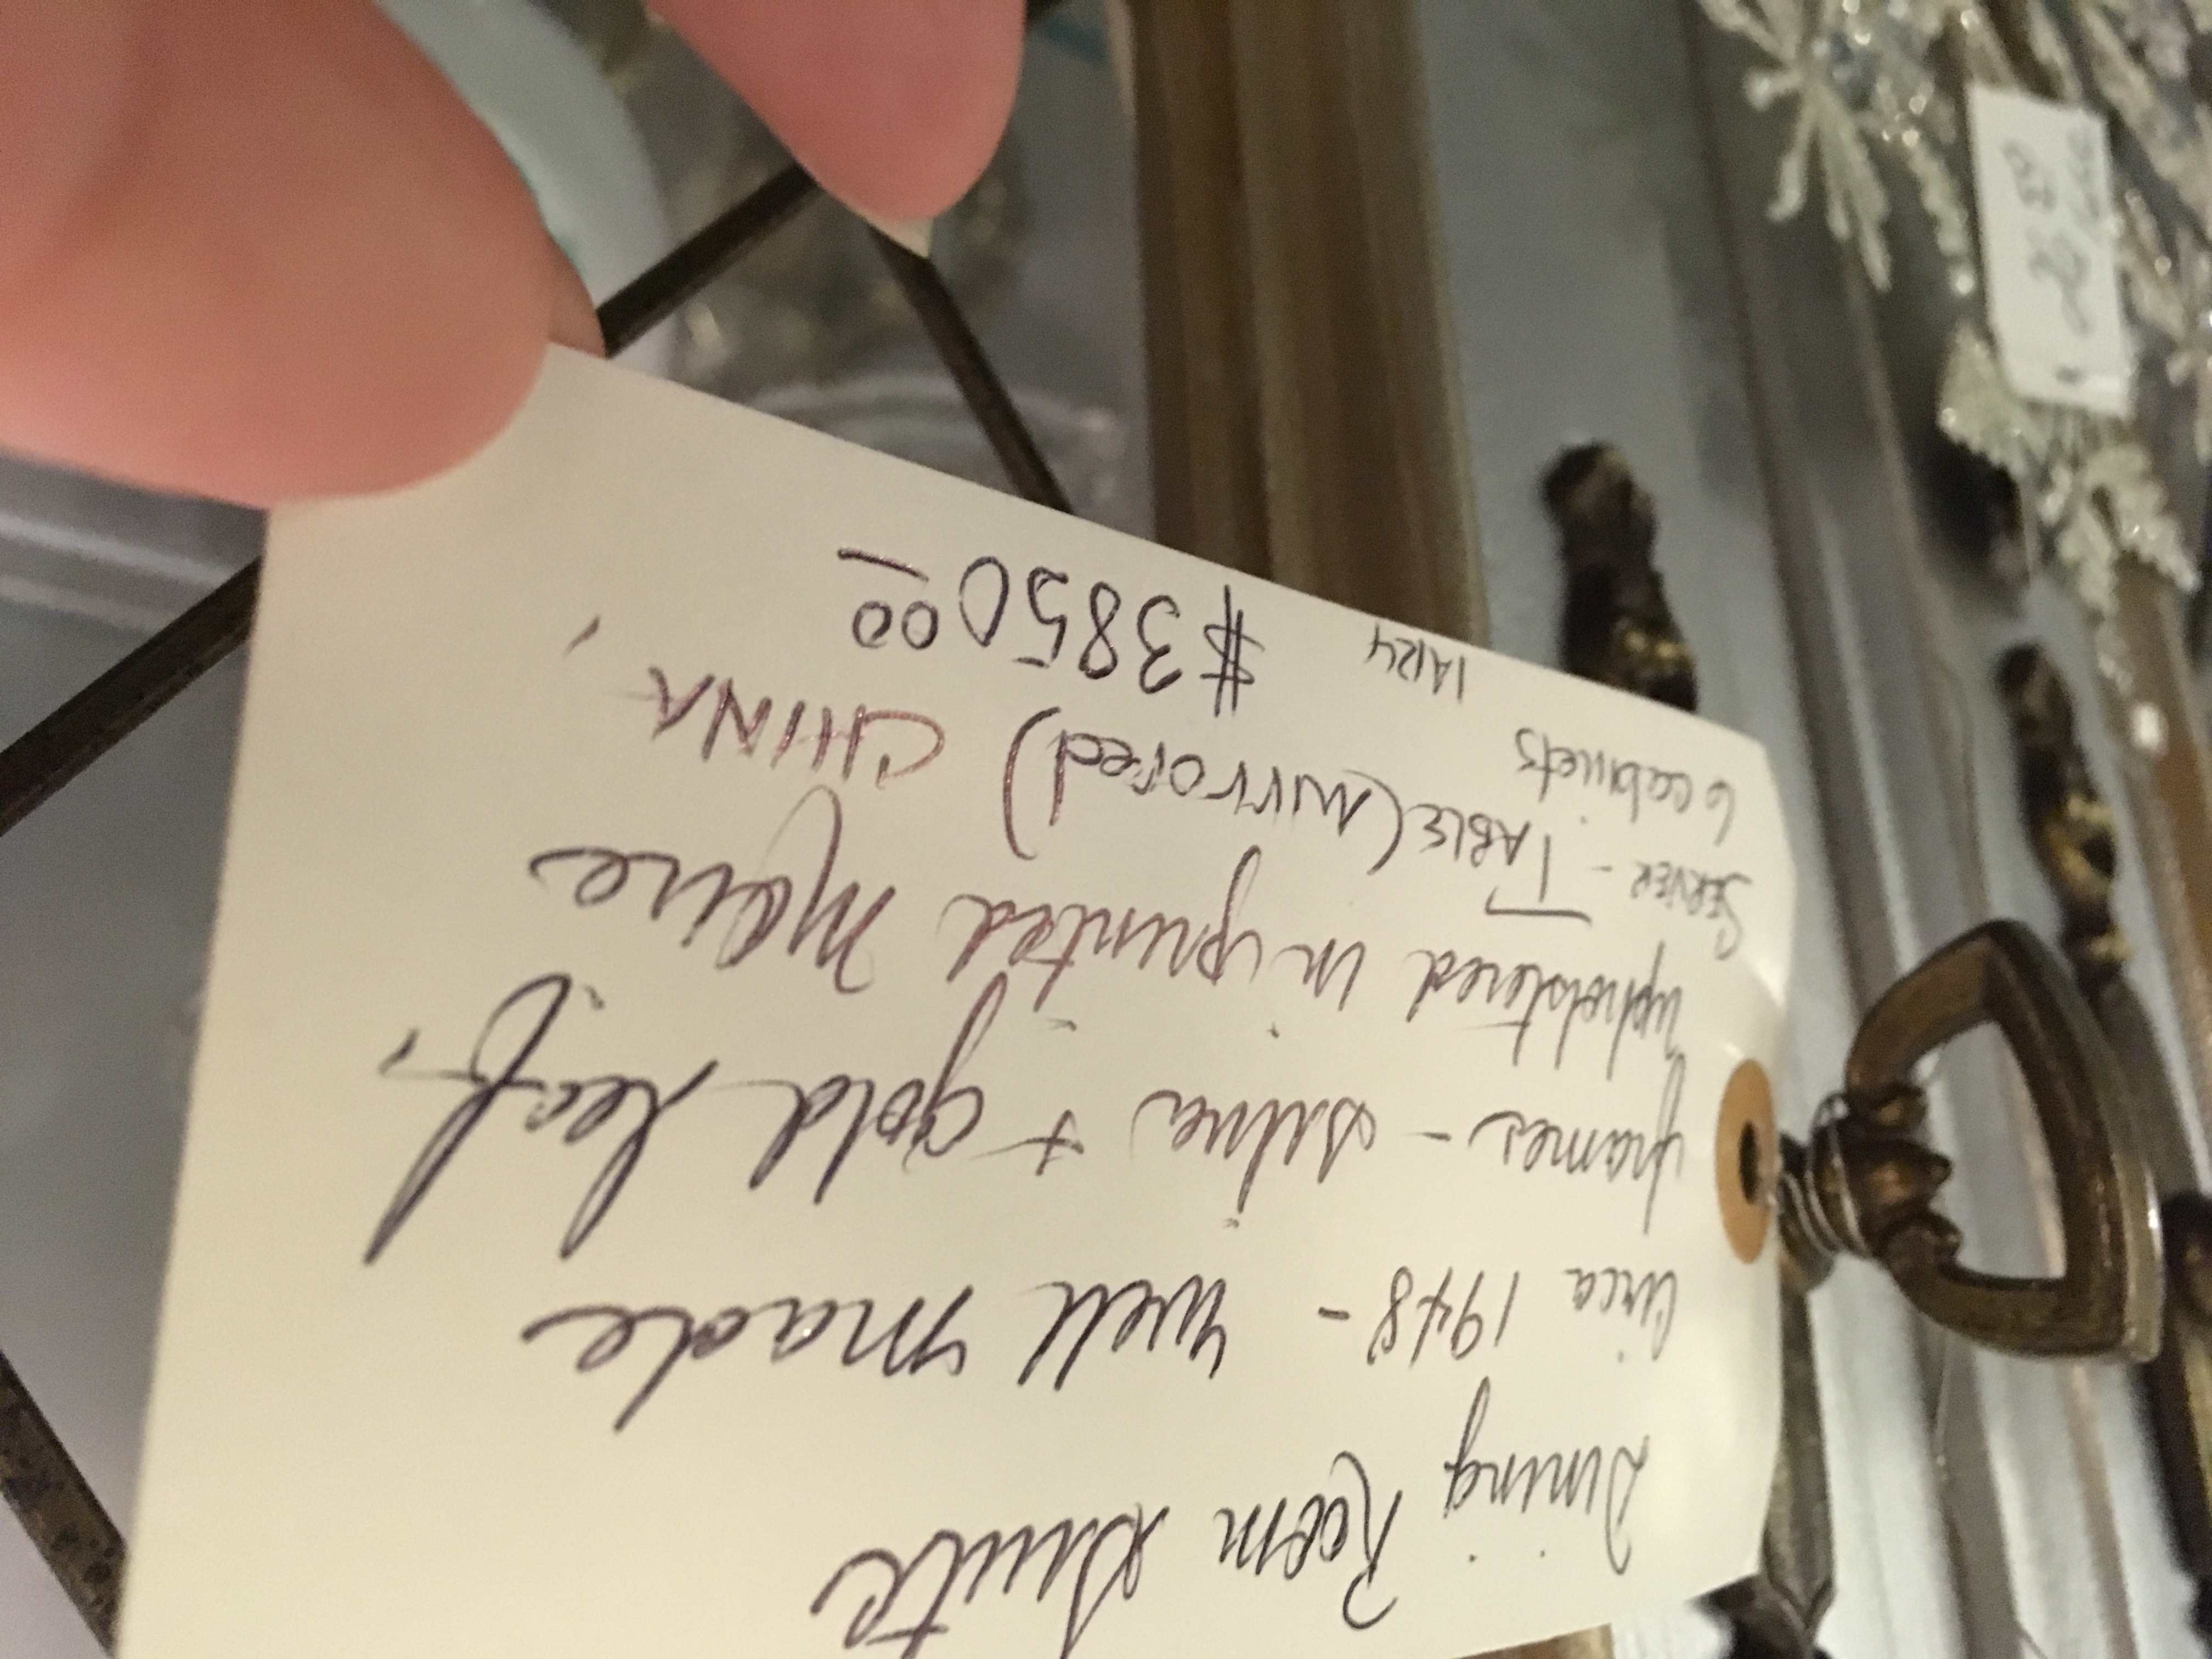 Dining Room Suite
Circa 1948 - well made
frames - silver + gold leaf,
upholstered in printed Moire
SERVER - TABLE (mirrored) CHINA,
6 cabinets
14124 $3850.00